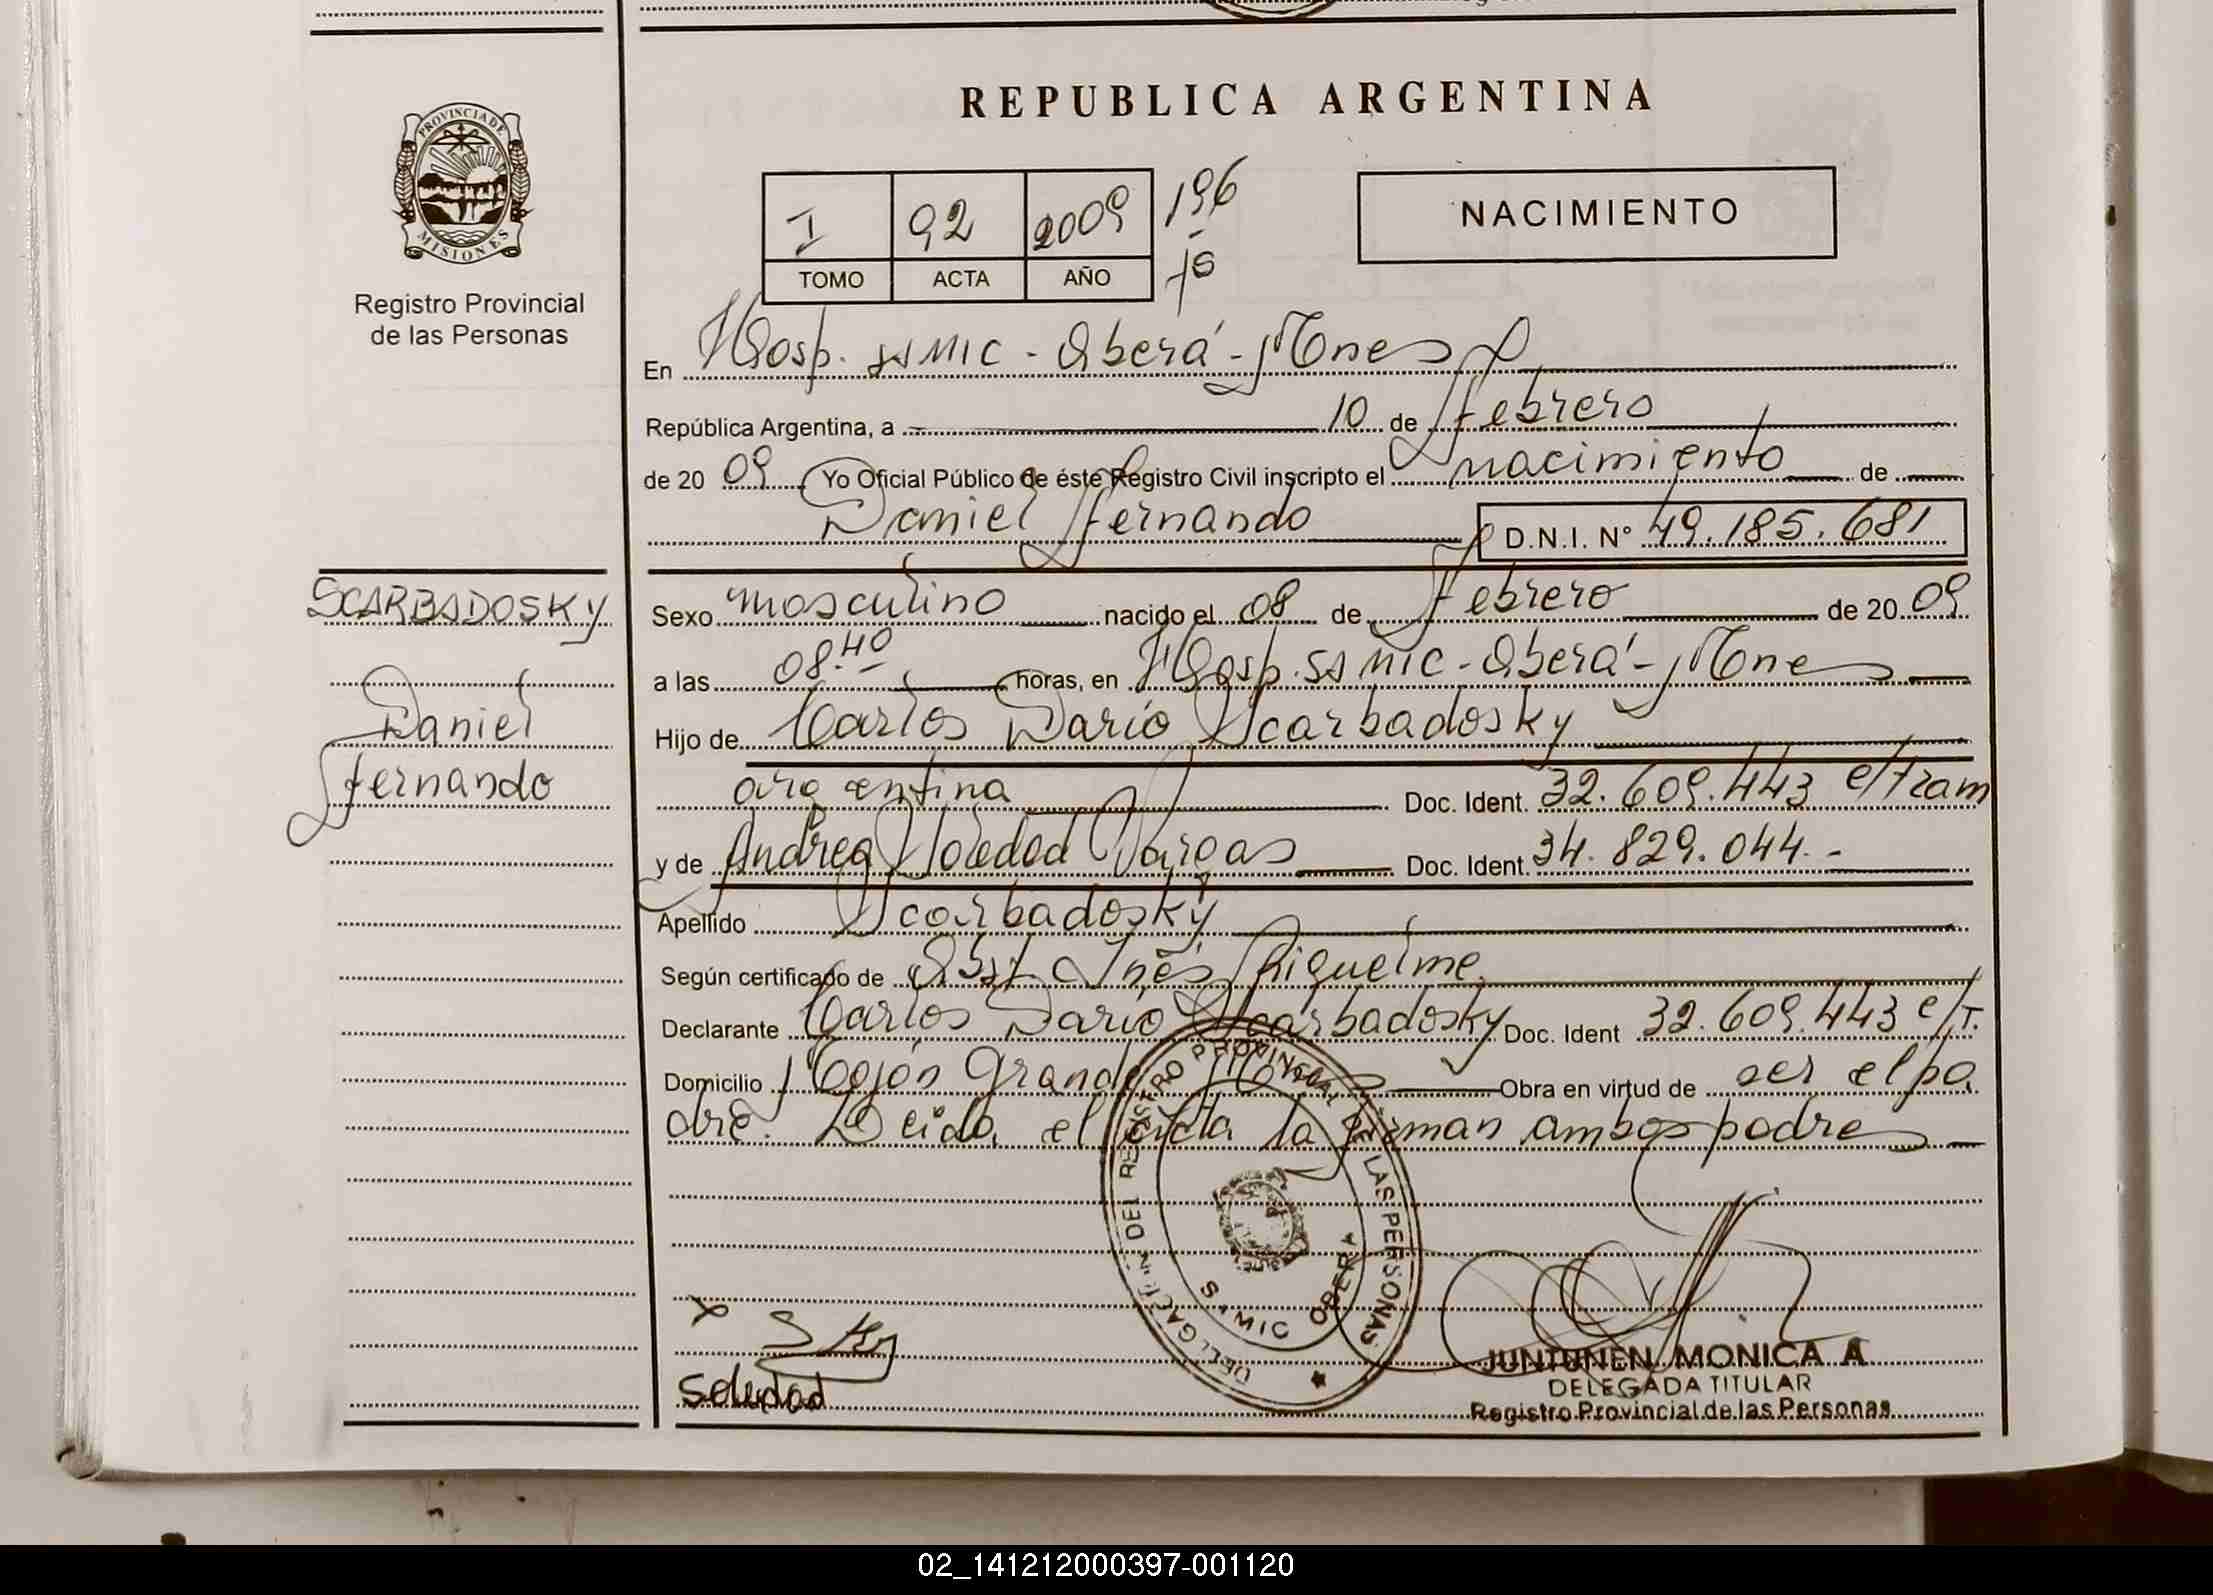 PROVINCIA DE
MISIONES
Registro Provincial
de las Personas
SCARBADOSKY
Daniel
Fernando
REPUBLICA ARGENTINA
I 92 2009 196
TOMO ACTA AÑO
NACIMIENTO
En Hosp. SAMIC - Oberá - Mnes
República Argentina, a 10 de Febrero
de 20 09 Yo Oficial Público de éste Registro Civil inscripto el nacimiento de
Daniel Fernando D.N.I. Nº 49.185.681
Sexo masculino nacido el 08 de Febrero de 20 09
a las 08.40 horas, en Hosp. SAMIC - Oberá - Mnes
Hijo de Carlos Darío Scarbadosky
argentina Doc. Ident. 32.609.443 e/tram
y de Andrea Soledad Vargas Doc. Ident. 34.829.044.-
Apellido Scarbadosky
Según certificado de Obst. Inés Riquelme
Declarante Carlos Darío Scarbadosky Doc. Ident 32.609.443 e/T.
Domicilio Mojón Grande Mnes Obra en virtud de ser el pa
dre. Leida el acta la firman ambos padres
DELEGACION DEL REGISTRO PROVINCIAL DE LAS PERSONAS
SAMIC OBERA
Soledad
JUNTUNEN MONICA A
DELEGADA TITULAR
Registro Provincial de las Personas
02_141212000397-001120